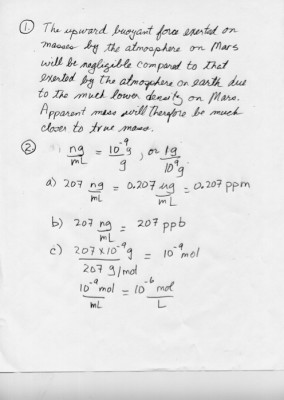 ① The upward buoyant force exerted on
masses by the atmosphere on Mars
will be negligible compared to that
exerted by the atmosphere on earth due
to the much lower density on Mars.
Apparent mass will therefore be much
closer to true mass.
② ng/mL = 10⁻⁹g/g, or 1g/10⁹g
a) 207 ng/mL = 0.207 ug/mL = 0.207 ppm
b) 207 ng/mL = 207 ppb
c) 207 x 10⁻⁹ g / 207 g/mol = 10⁻⁹ mol
10⁻⁹ mol/mL = 10⁻⁶ mol/L